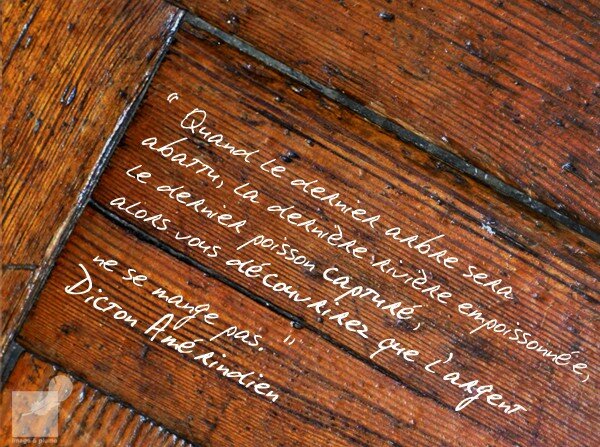 " Quand le dernier arbre sera
abattu, la dernière rivière empoissonnées,
le dernier poisson capturé,
alors vous découvrirez que l'argent
ne se mange pas. "
Dicton Amérindien
image & plume